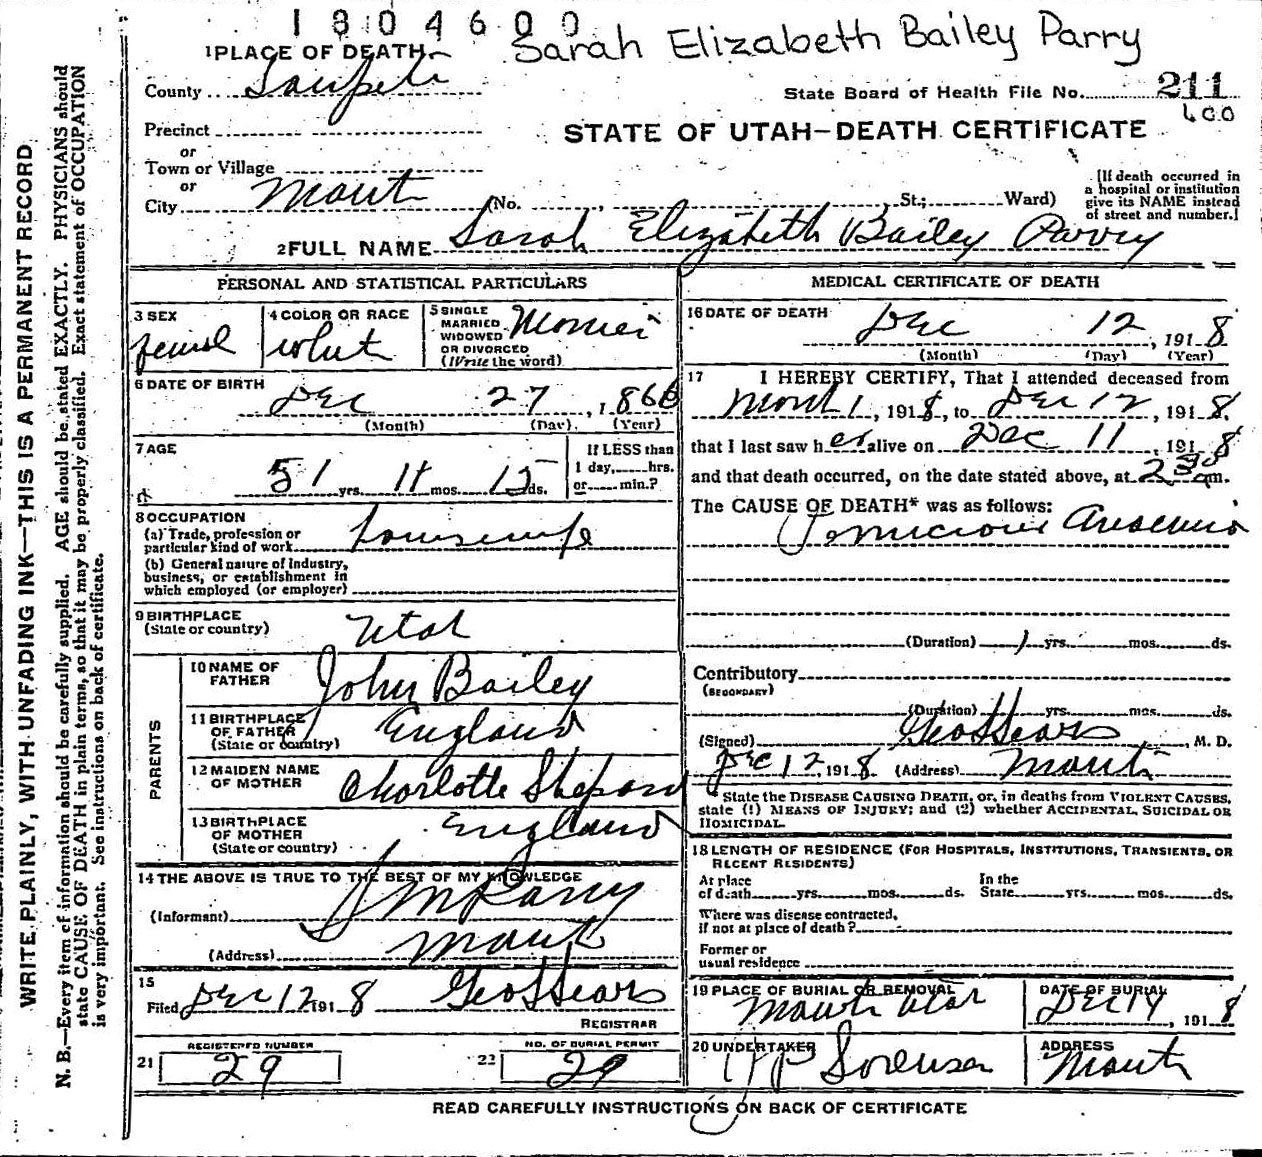 1804600
Sarah Elizabeth Bailey Parry
1 PLACE OF DEATH
County Sanpete
State Board of Health File No. 211
600
Precinct
STATE OF UTAH—DEATH CERTIFICATE
or
Town or Village
or
City Manti (No. , St.; Ward)
[If death occurred in
a hospital or institution
give its NAME instead
of street and number.]
2 FULL NAME Sarah Elizabeth Bailey Parry
WRITE PLAINLY, WITH UNFADING INK—THIS IS A PERMANENT RECORD
N. B.—Every item of information should be carefully supplied. AGE should be stated EXACTLY. PHYSICIANS should
state CAUSE OF DEATH in plain terms, so that it may be properly classified. Exact statement of OCCUPATION
is very important. See instructions on back of certificate.
PERSONAL AND STATISTICAL PARTICULARS
3 SEX
female
4 COLOR OR RACE
white
5 SINGLE
MARRIED
WIDOWED
OR DIVORCED
(Write the word)
6 DATE OF BIRTH
Dec 27, 1866
(Month) (Day) (Year)
7 AGE
51 yrs. 11 mos. 15 ds.
If LESS than
1 day, hrs.
or min.?
8 OCCUPATION
(a) Trade, profession or
particular kind of work Housewife
(b) General nature of Industry,
business, or establishment in
which employed (or employer)
9 BIRTHPLACE
(State or country) Utah
PARENTS
10 NAME OF
FATHER John Bailey
11 BIRTHPLACE
OF FATHER
(State or country) England
12 MAIDEN NAME
OF MOTHER Charlotte Shepard
13 BIRTHPLACE
OF MOTHER
(State or country) England
14 THE ABOVE IS TRUE TO THE BEST OF MY KNOWLEDGE
(Informant) J M Parry
(Address) Manti
15
Filed Dec 12 1918 Geo H Sears
REGISTRAR
21 REGISTERED NUMBER
29
22 NO. OF BURIAL PERMIT
29
MEDICAL CERTIFICATE OF DEATH
16 DATE OF DEATH
Dec 12, 1918
(Month) (Day) (Year)
17 I HEREBY CERTIFY, That I attended deceased from
1, 1918, to Dec 12, 1918.
that I last saw her alive on Dec 11, 1918
and that death occurred, on the date stated above, at 2 30 m.
The CAUSE OF DEATH* was as follows:
Pernicious Anaemia
(Duration) 1 yrs. mos. ds.
Contributory
(SECONDARY)
(Duration) yrs. mos. ds.
(Signed) Geo H Sears, M. D.
Dec 12, 1918 (Address) Manti
State the DISEASE CAUSING DEATH, or, in deaths from VIOLENT CAUSES,
state (1) MEANS OF INJURY; and (2) whether ACCIDENTAL, SUICIDAL OR
HOMICIDAL.
18 LENGTH OF RESIDENCE (FOR HOSPITALS, INSTITUTIONS, TRANSIENTS, OR
RECENT RESIDENTS)
At place
of death yrs. mos. ds.
In the
State yrs. mos. ds.
Where was disease contracted,
if not at place of death?
Former or
usual residence
19 PLACE OF BURIAL OR REMOVAL
Manti Utah
DATE OF BURIAL
Dec 14, 1918
20 UNDERTAKER
Sorensen
ADDRESS
Manti
READ CAREFULLY INSTRUCTIONS ON BACK OF CERTIFICATE